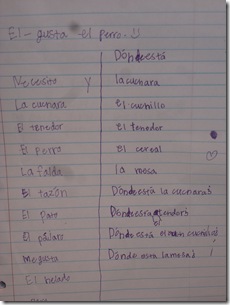 El - gusta el perro.
Dónde está
Necesito y la cuchara
La cuchara el cuchillo
El tenedor el tenedor
El perro el cereal
La falda la mesa
El tazón Dónde está la cuchara
El pato
El pájaro Dónde está el
Me gusta Dónde está la mesa
El helado